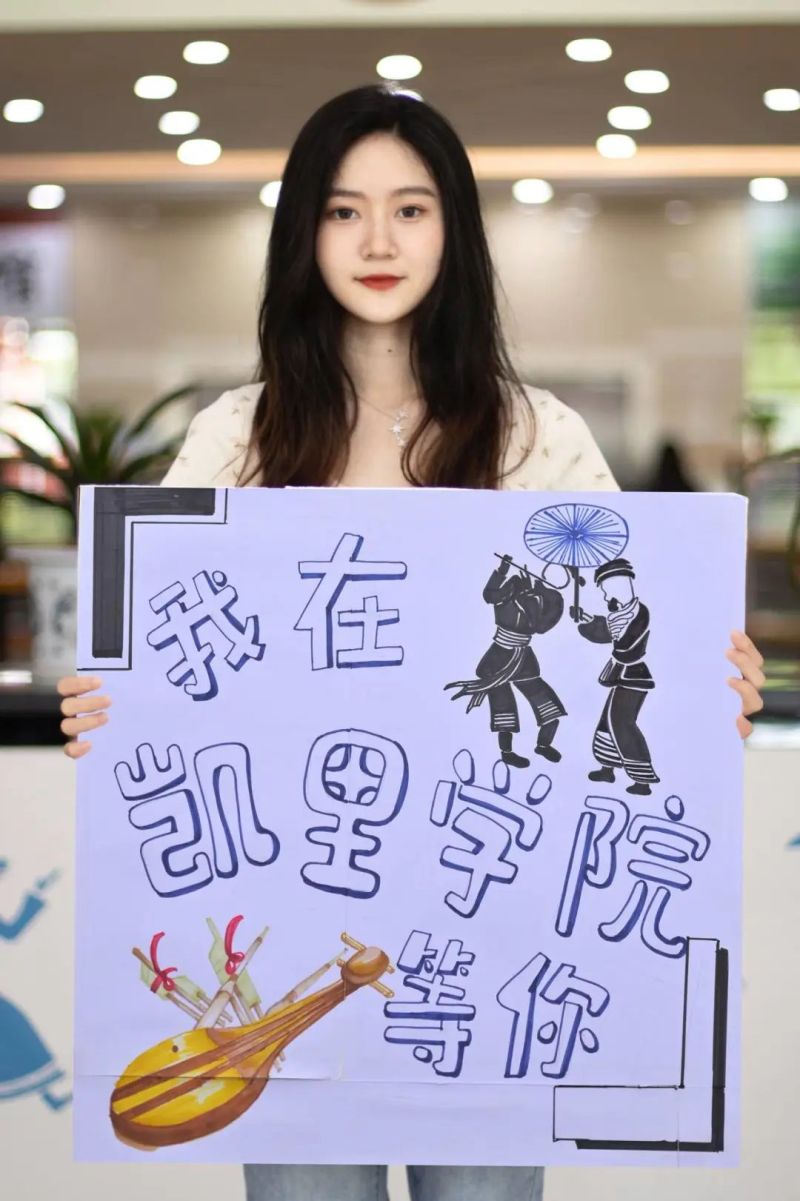 我在
凯里学院
等你